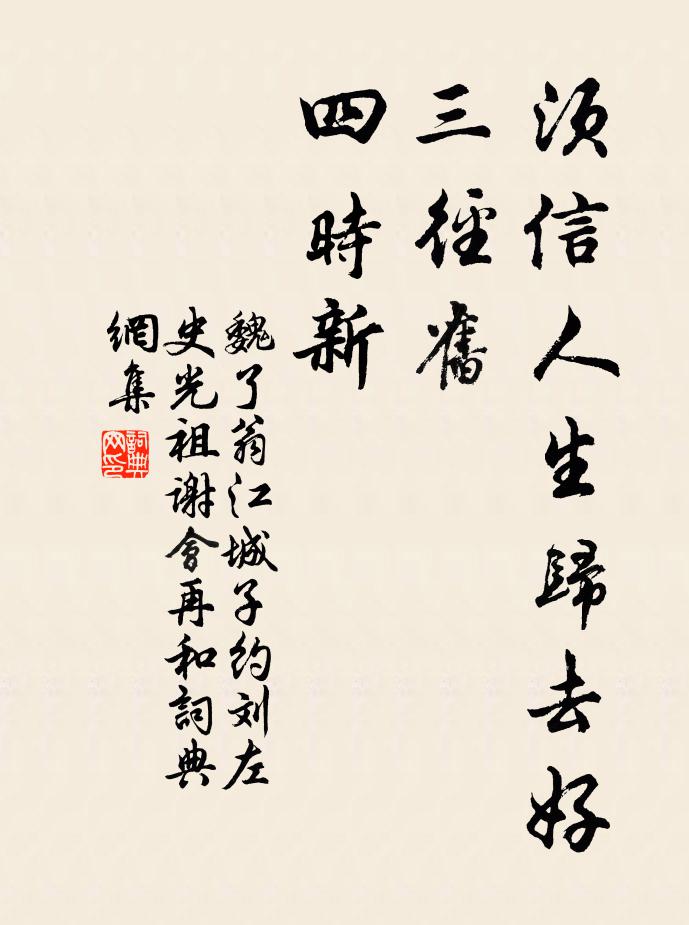 須信人生歸去好
三徑舊
四時新
魏了翁江城子約刘左
史光祖謝會再和詞典
網集
詞典网印